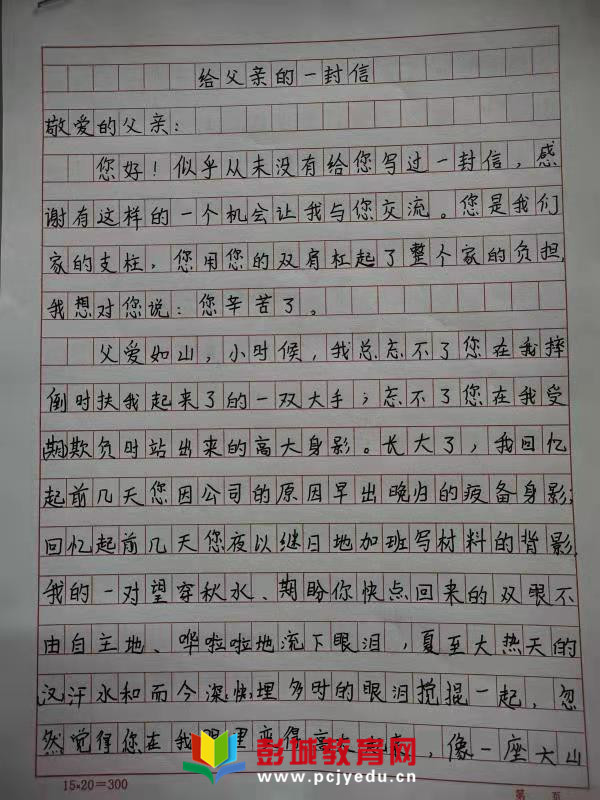 给父亲的一封信
敬爱的父亲：
您好！似乎从未没有给您写过一封信，感
谢有这样的一个机会让我与您交流。您是我们
家的支柱，您用您的双肩杠起了整个家的负担，
我想对您说：您辛苦了。
父爱如山，小时候，我总忘不了您在我摔
倒时扶我起来了的一双大手；忘不了您在我受
期欺负时站出来的高大身影。长大了，我回忆
起前几天您因公司的原因早出晚归的疲备身影；
回忆起前几天您夜以继日地加班写材料的背影，
我的一对望穿秋水、期盼你快点回来的双眼不
由自主地、哗啦啦地流下眼泪，夏至大热天的
汉汗水和而今深埋多时的眼泪搅混一起，忽
然觉得您在我眼里变得高大起来，像一座大山
彭城教育网
www.pcjyedu.cn
15×20=300
第 页